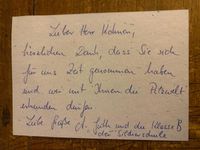 Lieber Herr Hofmann,
herzlichen Dank, dass Sie sich
für uns Zeit genommen haben
und wir mit Ihnen die Pilzwelt
erkunden durften.
Liebe Grüße A. und die Klasse B
der